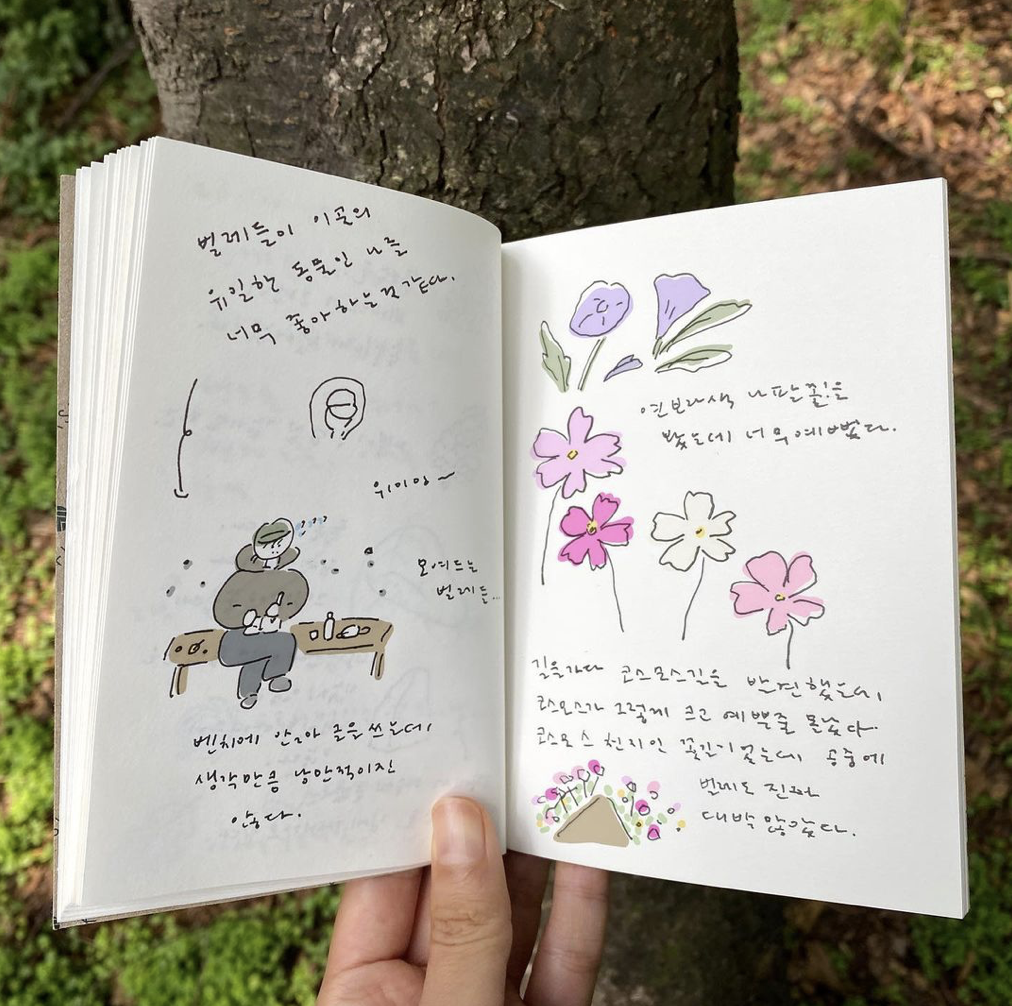 벌레들이 이곳의
유일한 동물인 나를
너무 좋아하는것같다.
위이잉~
모여드는
벌레들...
벤치에 앉아 글을 쓰는데
생각만큼 낭만적이진
않다.
연보라색 나팔꽃을
봤는데 너무 예뻤다.
길을가다 코스모스길을 발견했는데,
코스모스가 그렇게 크고 예쁜줄 몰랐다.
코스모스 천지인 꽃길이었는데 공중에
벌레도 진짜
대박 많았다.